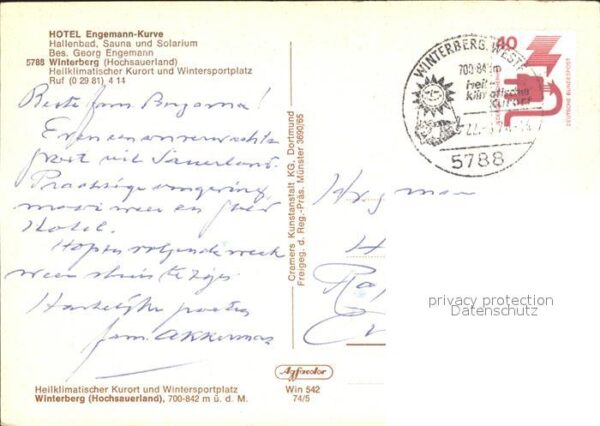 HOTEL Engemann-Kurve
Hallenbad, Sauna und Solarium
Bes. Georg Engemann
5788 Winterberg (Hochsauerland)
Heilklimatischer Kurort und Wintersportplatz
Ruf (0 29 81) 4 11
Beste fam Bergsma!
Even een onverwachte
groet uit Sauerland.
Prachtige omgeving,
mooi weer en goed
Hotel.
Hopen volgende week
weer thuis te zijn
Hartelijke groeten
fam. Akkerman
Heilklimatischer Kurort und Wintersportplatz
Winterberg (Hochsauerland), 700-842 m ü. d. M.
Cremers Kunstanstalt KG, Dortmund
Freigeg. d. Reg.-Präs. Münster 3690/65
Agfacolor
Win 542
74/5
WINTERBERG, WESTF
700-842
Heil-
klimatischer
Kurort
5788
40
DEUTSCHE BUNDESPOST
privacy protection
Datenschutz